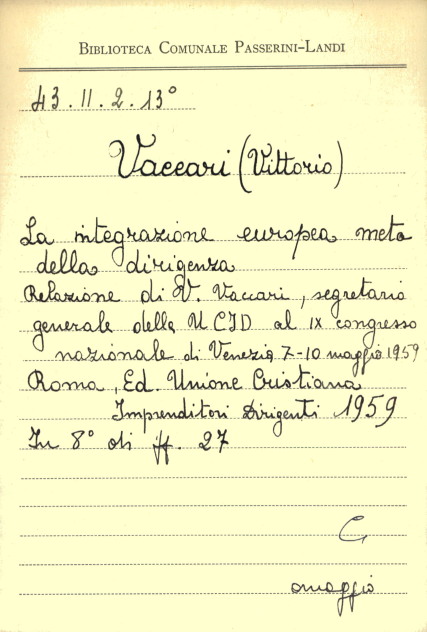 BIBLIOTECA COMUNALE PASSERINI-LANDI
43.II.2.13°
Vaccari (Vittorio)
La integrazione europea meta
della dirigenza
Relazione di V. Vaccari, segretario
generale della UCID al IX congresso
nazionale di Venezia 7-10 maggio 1959
Roma, Ed. Unione Cristiana
Imprenditori Dirigenti 1959
In 8° di ff. 27
C
omaggio